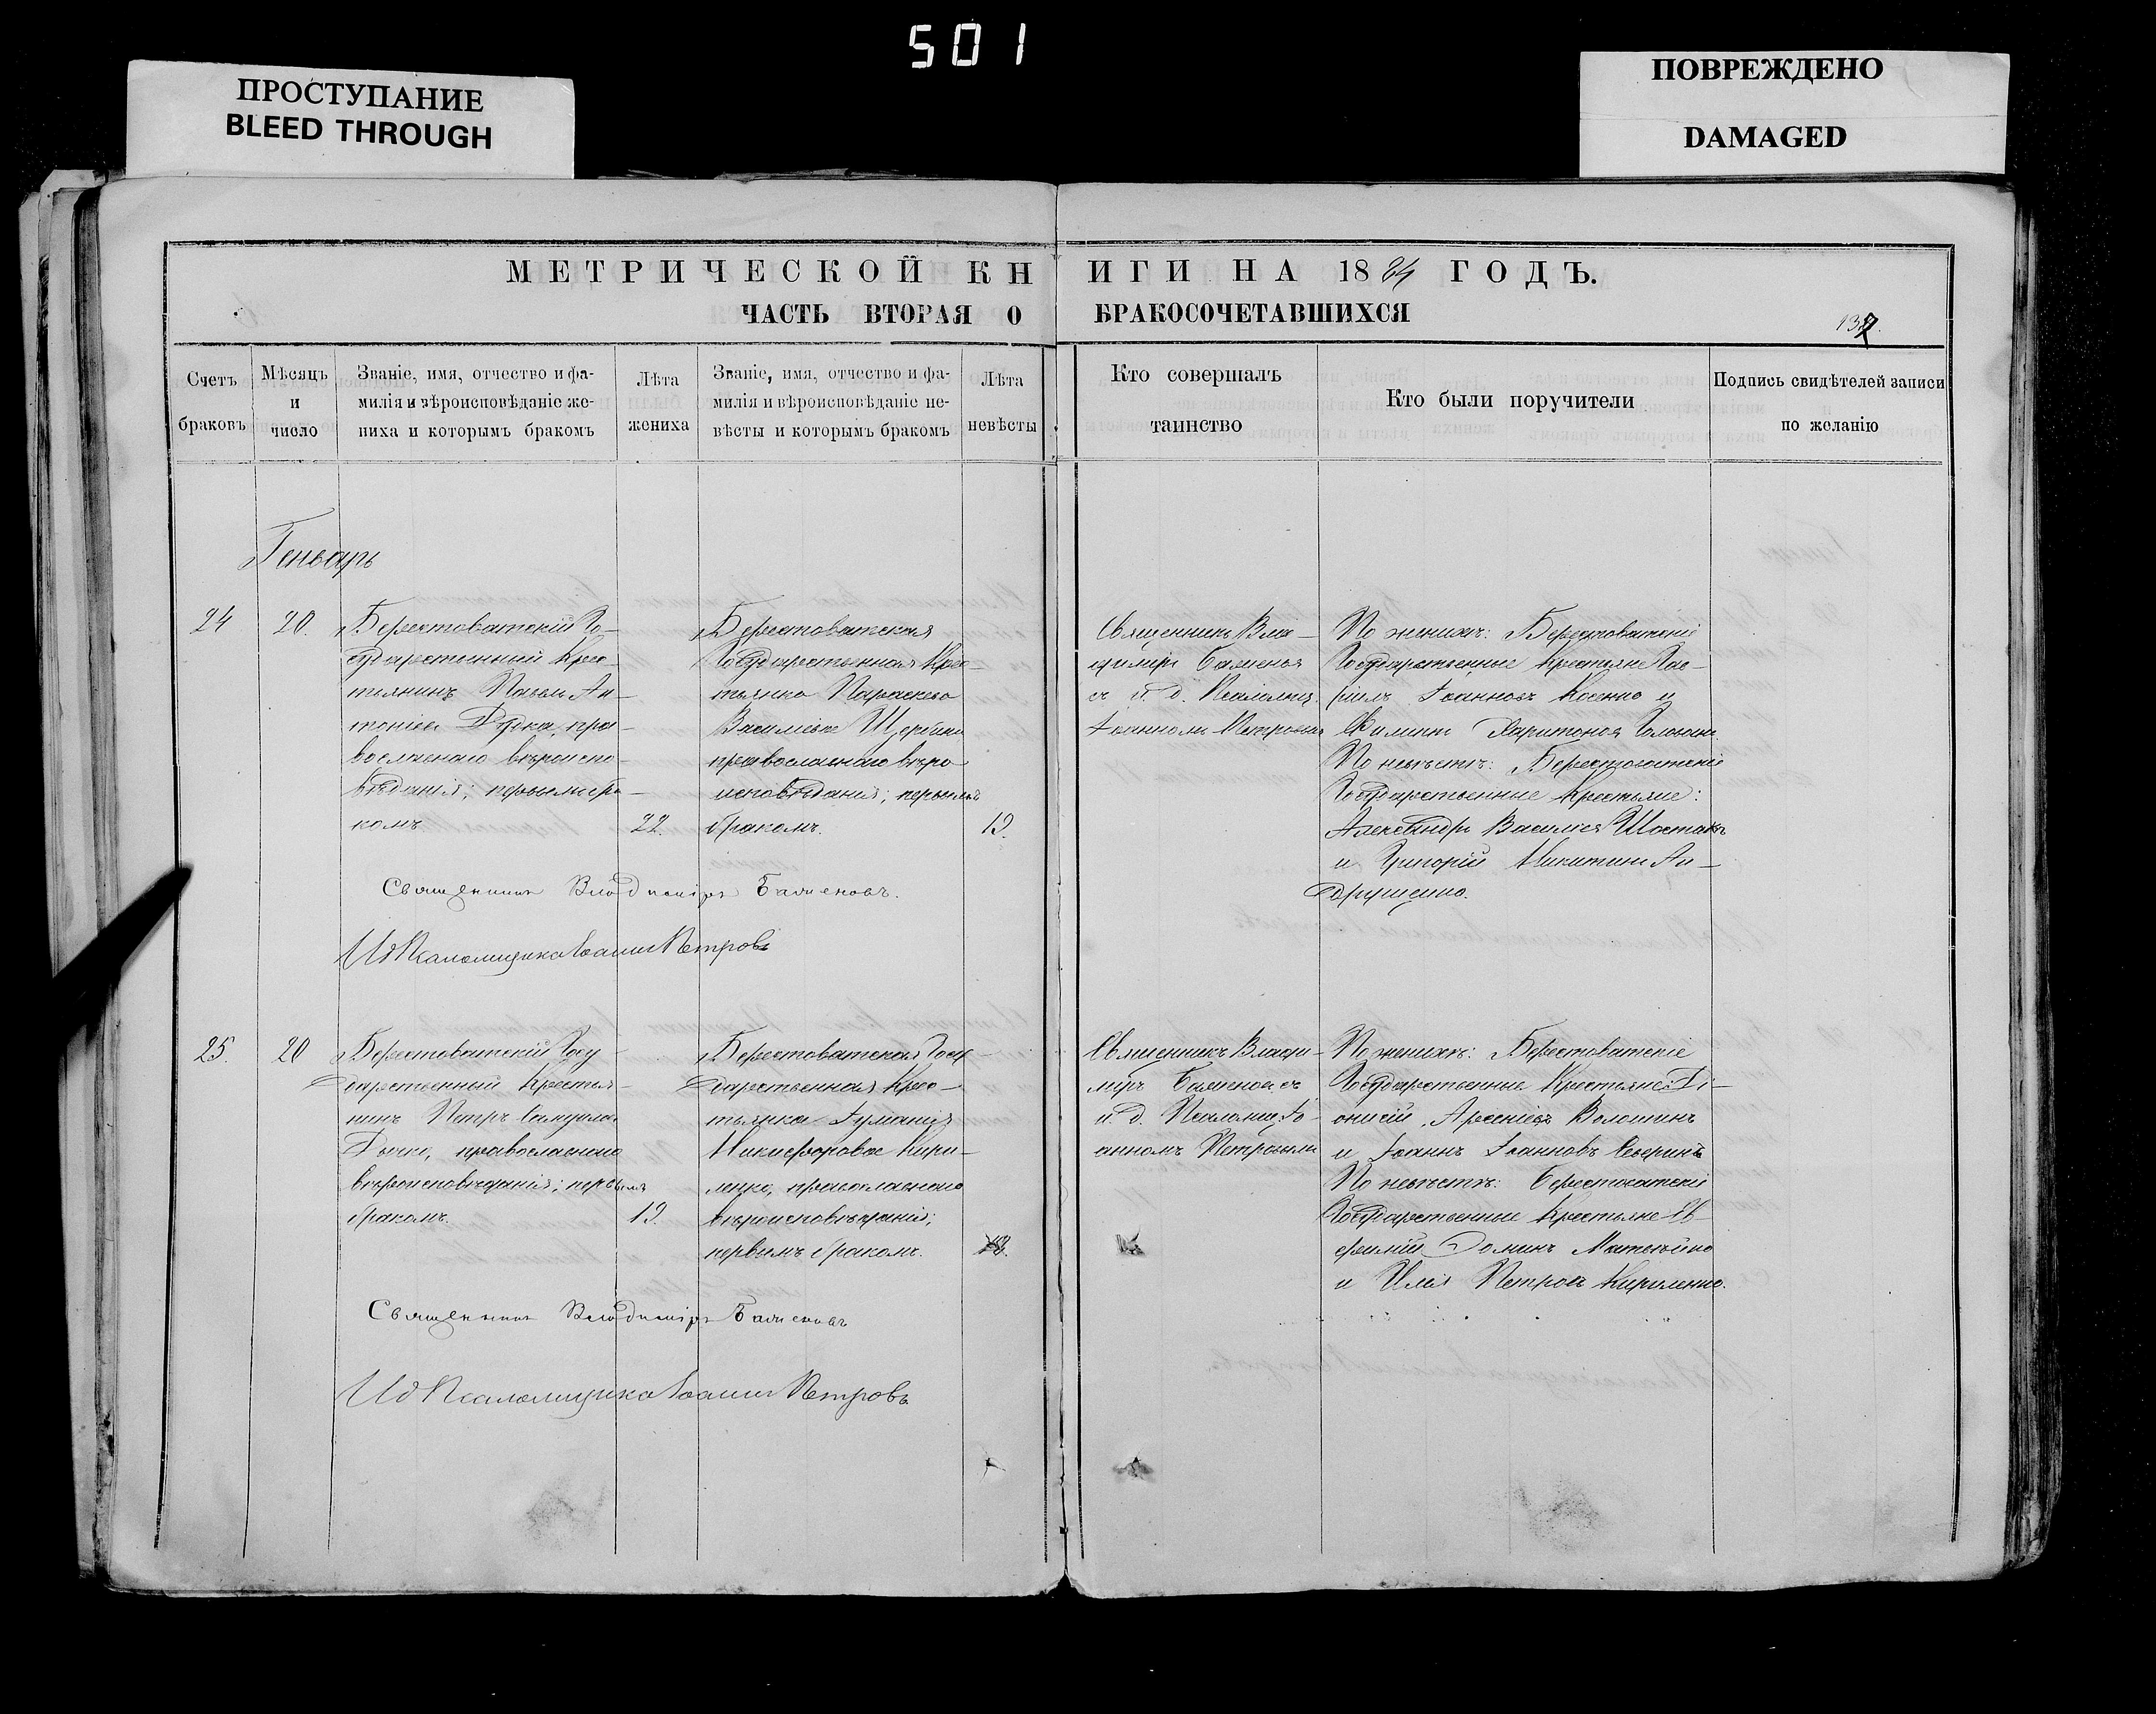 501
ПРОСТУПАНИЕ
BLEED THROUGH
ПОВРЕЖДЕНО
DAMAGED
МЕТРИЧЕСКОЙ КНИГИ НА 1884 ГОДЪ.
ЧАСТЬ ВТОРАЯ О БРАКОСОЧЕТАВШИХСЯ
137.
Счетъ
браковъ
Мѣсяцъ
и
число
Званіе, имя, отчество и фа-
милія и вѣроисповѣданіе же-
ниха и которымъ бракомъ
Лѣта
жениха
Званіе, имя, отчество и фа-
милія и вѣроисповѣданіе не-
вѣсты и которымъ бракомъ
Лѣта
невѣсты
Кто совершалъ
таинство
Кто были поручители
Подпись свидѣтелей записи
по желанію
Генварь
24
20.
Берестоватскій Го-
сударственный Крес-
тьянинъ Павелъ Ан-
тоніевъ пра-
вославнаго вѣроиспо-
вѣданія; первымъ бра-
комъ
22.
Берестоватская
Государственная Крес-
тьянка Параскева
Василіева Щербина
православнаго вѣро-
исповѣданія; первымъ
бракомъ.
19.
Священникъ Вла-
диміръ Баженовъ
съ и. д. Псаломщ.
Іоанномъ Петровымъ
По женихѣ: Берестоватскіе
Государственные Крестьяне
Іоанновъ и
Филиппъ Харитоновъ
По невѣстѣ: Берестоватскіе
Государственные Крестьяне:
Александръ Василіевъ Шостакъ
и Григорій Никитинъ Ан-
друщенко.
Священникъ Владиміръ Баженовъ.
Ид Псаломщика Іоаннъ Петровъ
25.
20
Берестоватскій Госу-
дарственный Крестья-
нинъ Петръ
православнаго
вѣроисповѣданія; первымъ
бракомъ.
19.
Берестоватская Госу-
дарственная Крес-
тьянка Іуліанія
Никифорова Кири-
ленко, православнаго
вѣроисповѣданія;
первымъ бракомъ.
18.
Священникъ Влади-
міръ Баженовъ съ
и. д. Псаломщ. Іо-
анномъ Петровымъ
По женихѣ: Берестоватскіе
Государственные Крестьяне: Ді-
онисій Арсеніевъ Волошинъ
и Іоаннъ Іоанновъ Северинъ
По невѣстѣ: Берестоватскіе
Государственные Крестьяне Ев-
фимій Матвѣйко
и Илія Петровъ Кириленко.
Священникъ Владиміръ Баженовъ
Ид Псаломщика Іоаннъ Петровъ